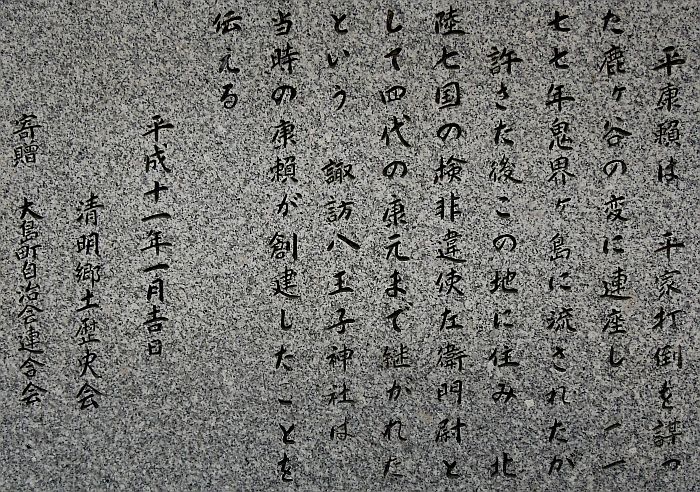 平康頼は 平家打倒を謀っ
た鹿ヶ谷の変に連座し 一一
七七年鬼界ヶ島に流されたが
許された後この地に住み 北
陸七国の検非違使左衛門尉と
して四代の康元まで継がれた
という 諏訪八王子神社は
当時の康頼が創建したことを
伝える
平成十一年一月吉日
清明郷土歴史会
寄贈 大島町自治会連合会